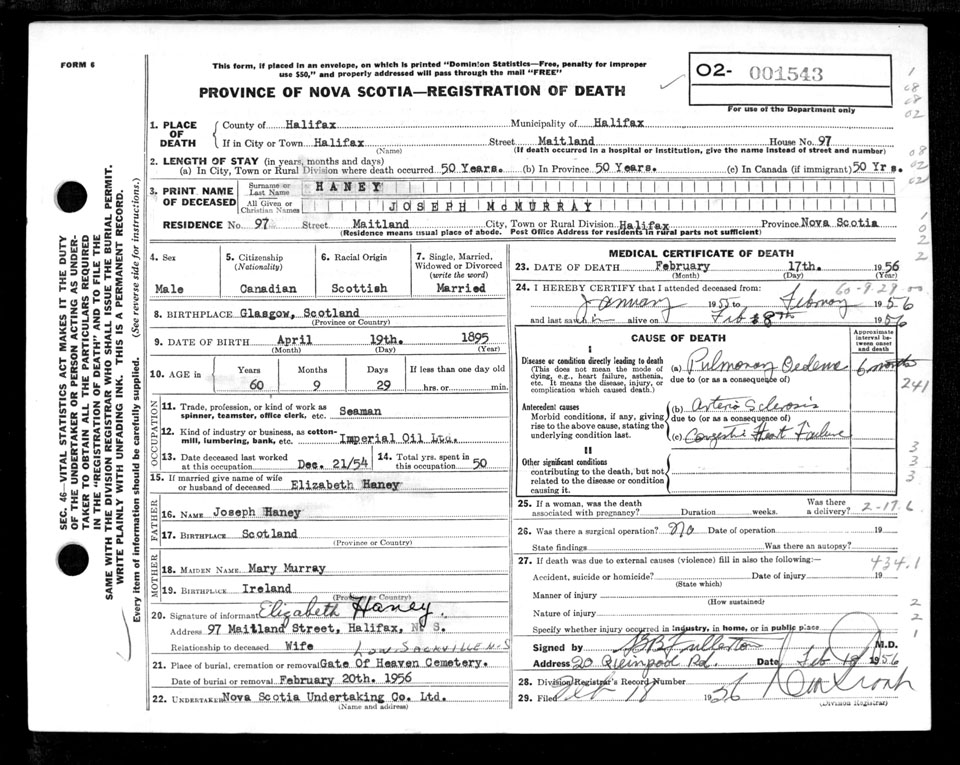 FORM 6
This form, if placed in an envelope, on which is printed "Dominion Statistics—Free, penalty for improper
use $50," and properly addressed will pass through the mail "FREE"
PROVINCE OF NOVA SCOTIA—REGISTRATION OF DEATH
O2- 001543
For use of the Department only
1. PLACE OF DEATH
County of Halifax Municipality of Halifax
If in City or Town Halifax Street Maitland House No. 97
(Name) (If death occurred in a hospital or institution, give the name instead of street and number)
2. LENGTH OF STAY (in years, months and days)
(a) In City, Town or Rural Division where death occurred 50 Years. (b) In Province 50 Years. (c) In Canada (if immigrant) 50 Yrs.
3. PRINT NAME OF DECEASED
Surname or Last Name HANEY
All Given or Christian Names JOSEPH McMURRAY
RESIDENCE No. 97 Street Maitland City, Town or Rural Division Halifax Province Nova Scotia
(Residence means usual place of abode. Post Office Address for residents in rural parts not sufficient)
4. Sex
Male
5. Citizenship (Nationality)
Canadian
6. Racial Origin
Scottish
7. Single, Married, Widowed or Divorced (write the word)
Married
8. BIRTHPLACE Glasgow, Scotland
(Province or Country)
9. DATE OF BIRTH April 19th. 1895
(Month) (Day) (Year)
10. AGE in Years Months Days If less than one day old
60 9 29 hrs. or min.
OCCUPATION
11. Trade, profession, or kind of work as spinner, teamster, office clerk, etc. Seaman
12. Kind of industry or business, as cotton-mill, lumbering, bank, etc. Imperial Oil Ltd.
13. Date deceased last worked at this occupation Dec. 21/54
14. Total yrs. spent in this occupation 50
15. If married give name of wife or husband of deceased Elizabeth Haney
FATHER
16. NAME Joseph Haney
17. BIRTHPLACE Scotland
(Province or Country)
MOTHER
18. MAIDEN NAME Mary Murray
19. BIRTHPLACE Ireland
(Province or Country)
20. Signature of informant Elizabeth Haney.
Address 97 Maitland Street, Halifax, N S.
Relationship to deceased Wife LOW. SACKVILLE N.S
21. Place of burial, cremation or removal Gate Of Heaven Cemetery.
Date of burial or removal February 20th. 1956
22. UNDERTAKER Nova Scotia Undertaking Co. Ltd.
(Name and address)
MEDICAL CERTIFICATE OF DEATH
23. DATE OF DEATH February 17th. 1956
(Month) (Day) (Year)
60-9-29-00
24. I HEREBY CERTIFY that I attended deceased from:
January 1955 to February 1956
and last saw h alive on Feb 8th 1956
CAUSE OF DEATH
Approximate interval between onset and death
I
Disease or condition directly leading to death
(This does not mean the mode of dying, e.g., heart failure, asthenia, etc. It means the disease, injury, or complication which caused death.)
(a) Pulmonary Oedema 6 months
due to (or as a consequence of)
241
Antecedent causes
Morbid conditions, if any, giving rise to the above cause, stating the underlying condition last.
(b) Arterio Sclerosis
due to (or as a consequence of)
(c) Congestive Heart Failure
II
Other significant conditions
contributing to the death, but not related to the disease or condition causing it.
25. If a woman, was the death associated with pregnancy? Duration weeks. Was there a delivery?
2-17.6
26. Was there a surgical operation? No Date of operation 19
State findings Was there an autopsy?
27. If death was due to external causes (violence) fill in also the following:—
434.1
Accident, suicide or homicide? Date of injury 19
(State which)
Manner of injury
(How sustained)
Nature of injury
Specify whether injury occurred in industry, in home, or in public place
Signed by Fullerton M.D.
Address 20 Rd. Date Feb 1956
28. Division Registrar's Record Number
29. Filed Feb 18 1956
(Division Registrar)
SEC. 46—VITAL STATISTICS ACT MAKES IT THE DUTY
OF THE UNDERTAKER OR PERSON ACTING AS UNDER-
TAKER TO OBTAIN ALL THE PARTICULARS REQUIRED
IN THE "REGISTRATION OF DEATH" AND TO FILE THE
SAME WITH THE DIVISION REGISTRAR WHO SHALL ISSUE THE BURIAL PERMIT.
WRITE PLAINLY WITH UNFADING INK. THIS IS A PERMANENT RECORD.
Every item of information should be carefully supplied. (See reverse side for instructions.)